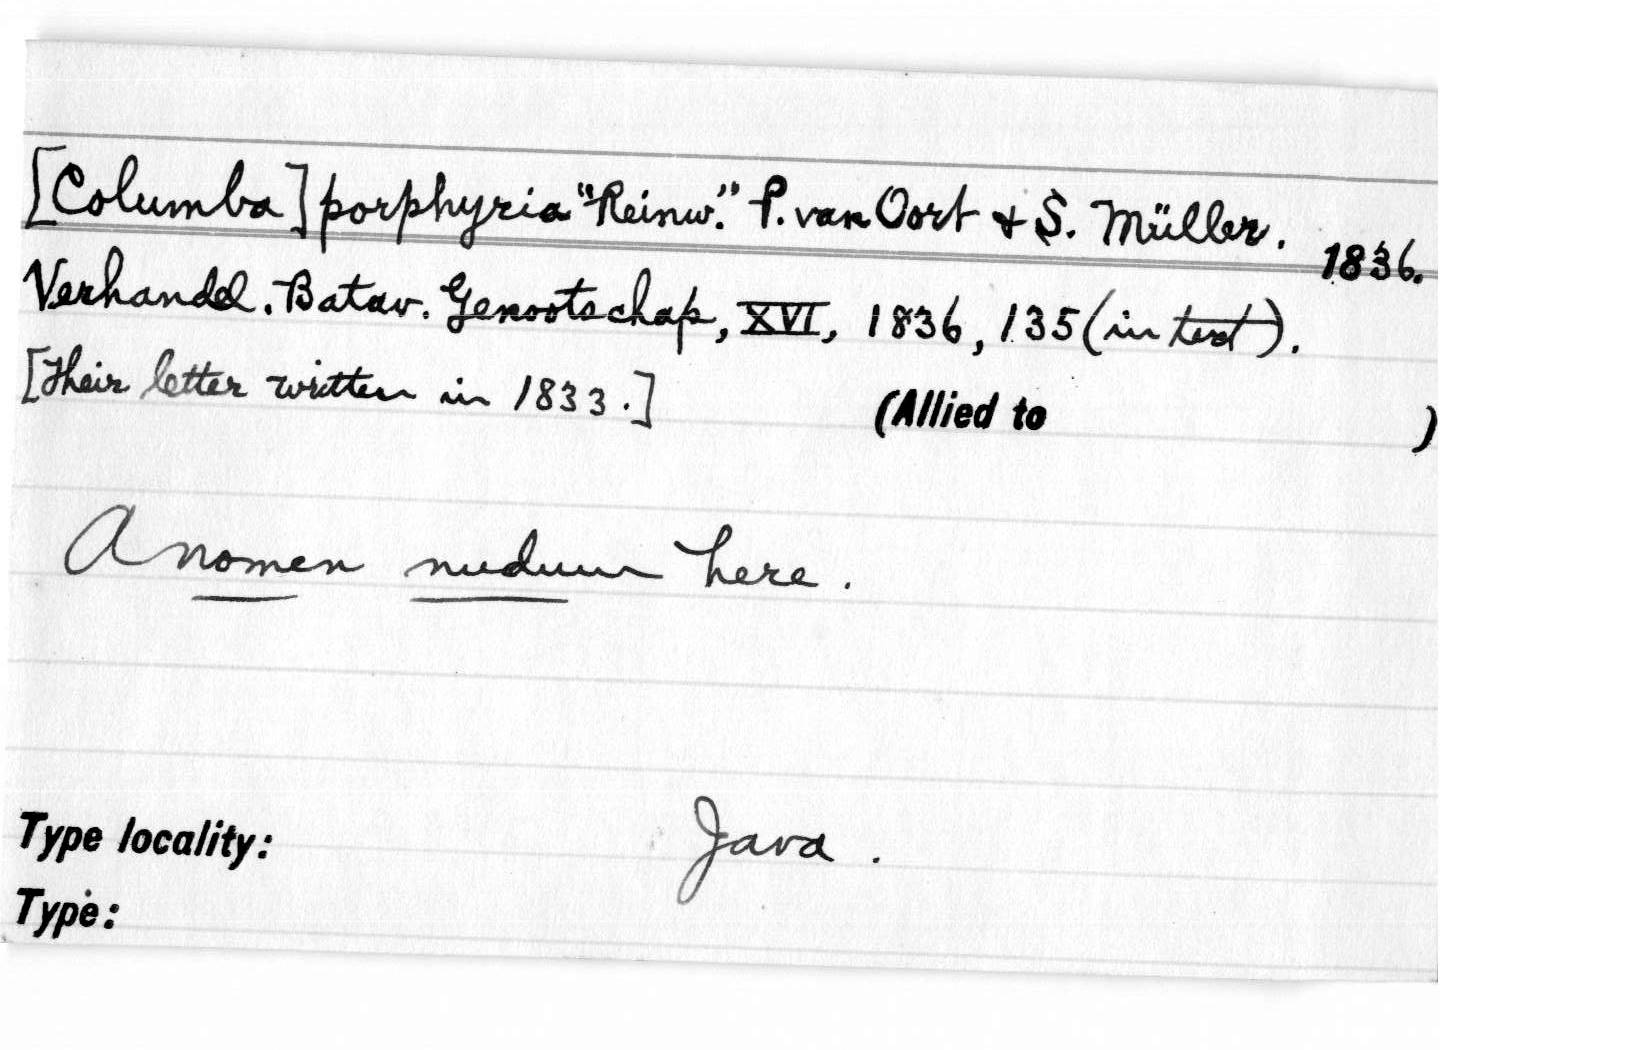 [Columba] porphyria "Reinw." P. van Oort + S. Müller. 1836.
Verhandel. Batav. Genootschap, XVI, 1836, 135 (in text).
[Their letter written in 1833.] (Allied to )
A nomen nudum here.
Type locality: Java.
Type: